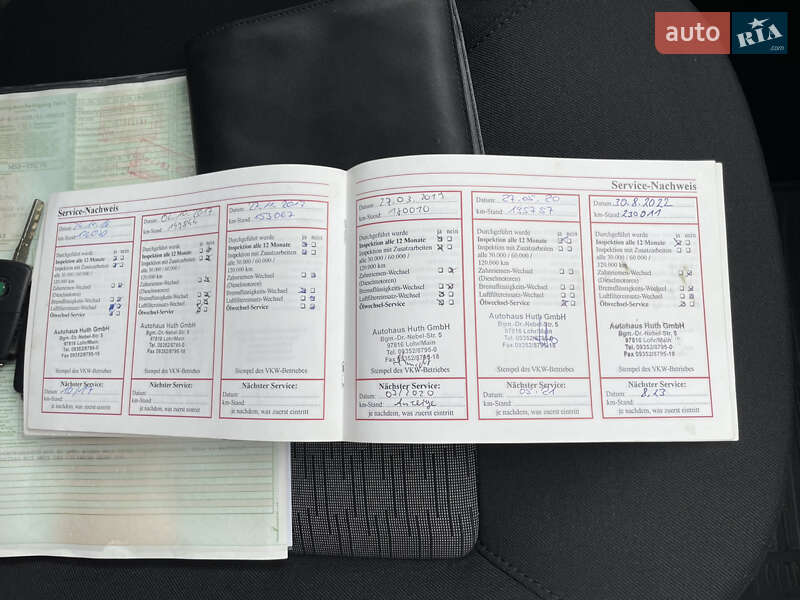 auto RIA .com
Service-Nachweis
Datum:
km-Stand:
Durchgeführt wurde ja nein
Inspektion alle 12 Monate
Inspektion mit Zusatzarbeiten
alle 30.000 / 60.000 /
120.000 km
Zahnriemen-Wechsel
(Dieselmotoren)
Bremsflüssigkeits-Wechsel
Luftfiltereinsatz-Wechsel
Ölwechsel-Service
Autohaus Huth GmbH
Bgm.-Dr.-Nebel-Str. 5
97816 Lohr/Main
Tel. 09352/8795-0
Fax 09352/8795-18
Stempel des VKW-Betriebes
Nächster Service:
Datum:
km-Stand:
je nachdem, was zuerst eintritt
Datum:
km-Stand: 147844
Durchgeführt wurde ja nein
Inspektion alle 12 Monate
Inspektion mit Zusatzarbeiten
alle 30.000 / 60.000 /
120.000 km
Zahnriemen-Wechsel
(Dieselmotoren)
Bremsflüssigkeits-Wechsel
Luftfiltereinsatz-Wechsel
Ölwechsel-Service
Autohaus Huth GmbH
Bgm.-Dr.-Nebel-Str. 5
97816 Lohr/Main
Tel. 09352/8795-0
Fax 09352/8795-18
Stempel des VKW-Betriebes
Nächster Service:
Datum:
km-Stand:
je nachdem, was zuerst eintritt
Datum:
km-Stand: 153067
Durchgeführt wurde ja nein
Inspektion alle 12 Monate
Inspektion mit Zusatzarbeiten
alle 30.000 / 60.000 /
120.000 km
Zahnriemen-Wechsel
(Dieselmotoren)
Bremsflüssigkeits-Wechsel
Luftfiltereinsatz-Wechsel
Ölwechsel-Service
Stempel des VKW-Betriebes
Nächster Service:
Datum:
km-Stand:
je nachdem, was zuerst eintritt
Service-Nachweis
Datum: 27.03.2019
km-Stand: 180010
Durchgeführt wurde ja nein
Inspektion alle 12 Monate
Inspektion mit Zusatzarbeiten
alle 30.000 / 60.000 /
120.000 km
Zahnriemen-Wechsel
(Dieselmotoren)
Bremsflüssigkeits-Wechsel
Luftfiltereinsatz-Wechsel
Ölwechsel-Service
Autohaus Huth GmbH
Bgm.-Dr.-Nebel-Str. 5
97816 Lohr/Main
Tel. 09352/8795-0
Fax 09352/8795-18
Stempel des VKW-Betriebes
Nächster Service:
Datum: 03/2020
km-Stand: Anzeige
je nachdem, was zuerst eintritt
Datum: 27.05.20
km-Stand: 195757
Durchgeführt wurde ja nein
Inspektion alle 12 Monate
Inspektion mit Zusatzarbeiten
alle 30.000 / 60.000 /
120.000 km
Zahnriemen-Wechsel
(Dieselmotoren)
Bremsflüssigkeits-Wechsel
Luftfiltereinsatz-Wechsel
Ölwechsel-Service
Autohaus Huth GmbH
Bgm.-Dr.-Nebel-Str. 5
97816 Lohr/Main
Tel. 09352/8795-0
Fax 09352/8795-18
Stempel des VKW-Betriebes
Nächster Service:
Datum: 05.21
km-Stand:
je nachdem, was zuerst eintritt
Datum: 30.8.2022
km-Stand: 239011
Durchgeführt wurde ja nein
Inspektion alle 12 Monate
Inspektion mit Zusatzarbeiten
alle 30.000 / 60.000 /
120.000 km
Zahnriemen-Wechsel
(Dieselmotoren)
Bremsflüssigkeits-Wechsel
Luftfiltereinsatz-Wechsel
Ölwechsel-Service
Autohaus Huth GmbH
Bgm.-Dr.-Nebel-Str. 5
97816 Lohr/Main
Tel. 09352/8795-0
Fax 09352/8795-18
Stempel des VKW-Betriebes
Nächster Service:
Datum: 8.23
km-Stand:
je nachdem, was zuerst eintritt